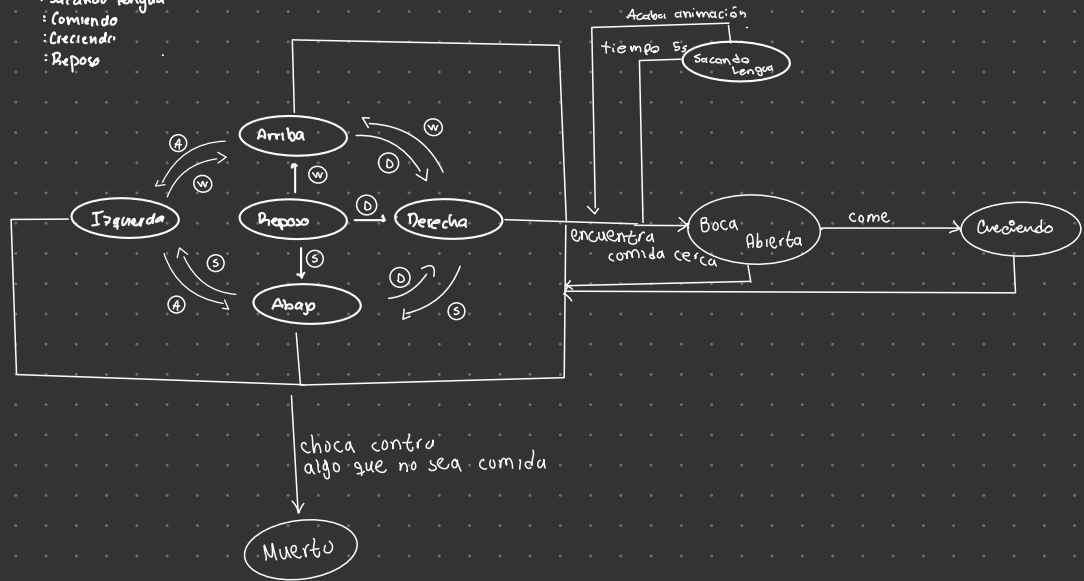 : Sacando lengua
: Comiendo
: Creciendo
: Reposo
Acaba animación
tiempo 5s
Sacando
Lengua
Arriba
W
A
D
W
W
Izquierda
Reposo
D
Derecha
encuentra
comida cerca
Boca
Abierta
come
Creciendo
S
S
D
A
S
Abajo
choca contra
algo que no sea comida
Muerto